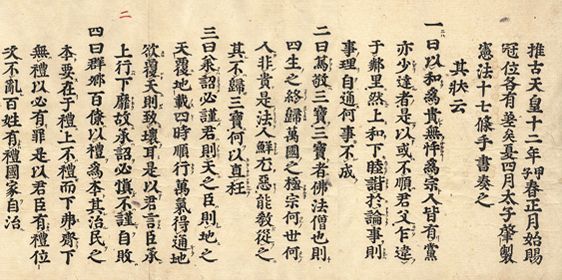 推古天皇十二年甲子春正月始賜
冠位各有差矣夏四月太子肇製
憲法十七條手書奏之
其狀云
一曰以和爲貴無忤爲宗人皆有黨
亦少達者是以或不順君父乍違
于鄰里然上和下睦諧於論事則
事理自通何事不成
二曰篤敬三寶三寶者佛法僧也則
四生之終歸萬國之極宗何世何
人非貴是法人鮮尤惡能敎從之
其不歸三寶何以直枉
三曰承詔必謹君則天之臣則地之
天覆地載四時順行萬氣得通地
欲覆天則致壞耳是以君言臣承
上行下靡故承詔必愼不謹自敗
二
四曰群卿百僚以禮爲本其治民之
本要在于禮上不禮而下弗齊下
無禮以必有罪是以君臣有禮位
次不亂百姓有禮國家自治